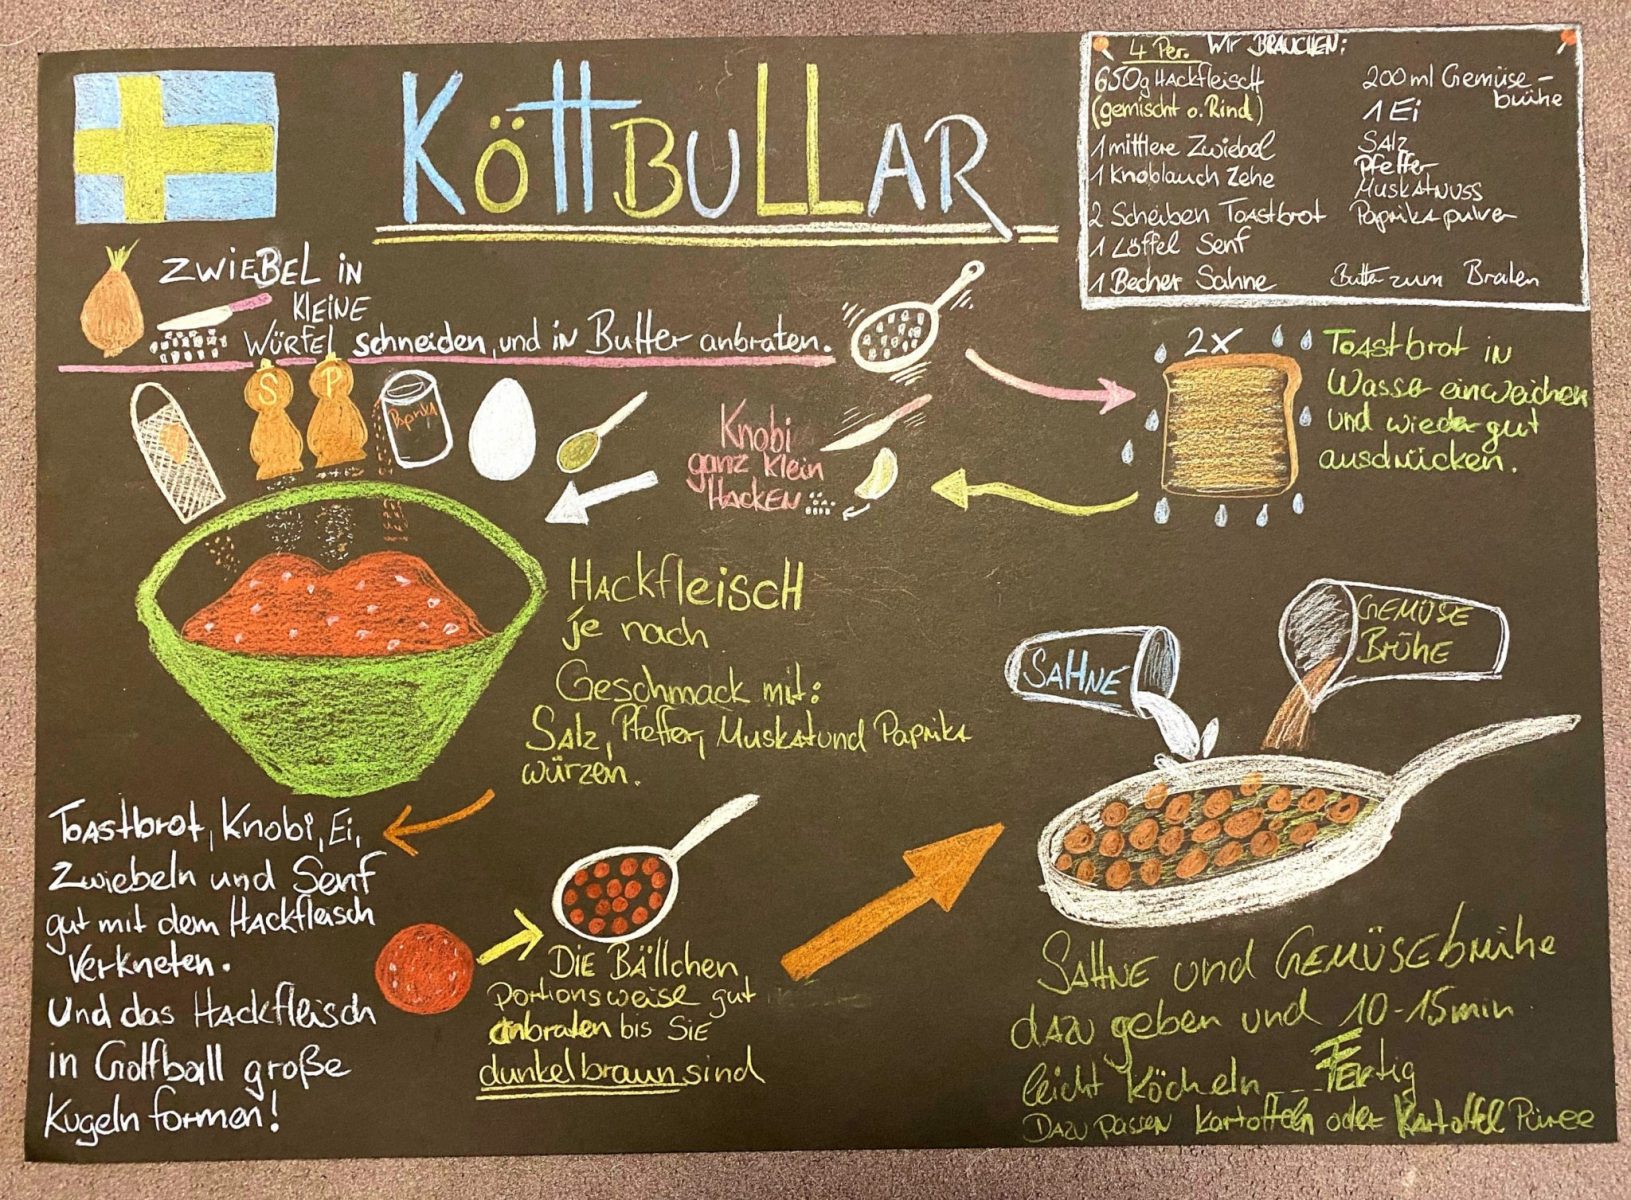 KöttBULLAR
4 Per. Wir BRAUCHEN:
650g HACKfleiscH
(gemischt o. Rind)
1 mittlere Zwiebel
1 Knoblauch Zehe
2 Scheiben Toastbrot
1 Löffel Senf
1 Becher Sahne
200 ml Gemüse-
brühe
1 Ei
SALZ
Pfeffer
MUSKATNUSS
Paprikapulver
Butter zum Braten
ZWIEBEL IN
KLEINE
WÜRFEL schneiden, und in Butter anbraten.
2x
Toastbrot in
Wasser einweichen
und wieder gut
ausdrücken.
Knobi
ganz klein
HACKEN
S
P
HACKfleiscH
je nach
Geschmack mit:
SALZ, Pfeffer, Muskat und Paprika
würzen.
Toastbrot, Knobi, Ei,
Zwiebeln und Senf
gut mit dem Hackfleisch
Verkneten.
Und das Hackfleisch
in Golfball große
Kugeln formen!
DIE BÄLLchen
portionsweise gut
anbraten bis SIE
dunkelbraun sind
SAHNE
GEMÜSE
BRÜHE
SAHNE und GEMÜSEbrühe
dazu geben und 10-15min
leicht Köcheln___ FERtig
DAZU PASSEN Kartoffeln oder Kartoffel Püree